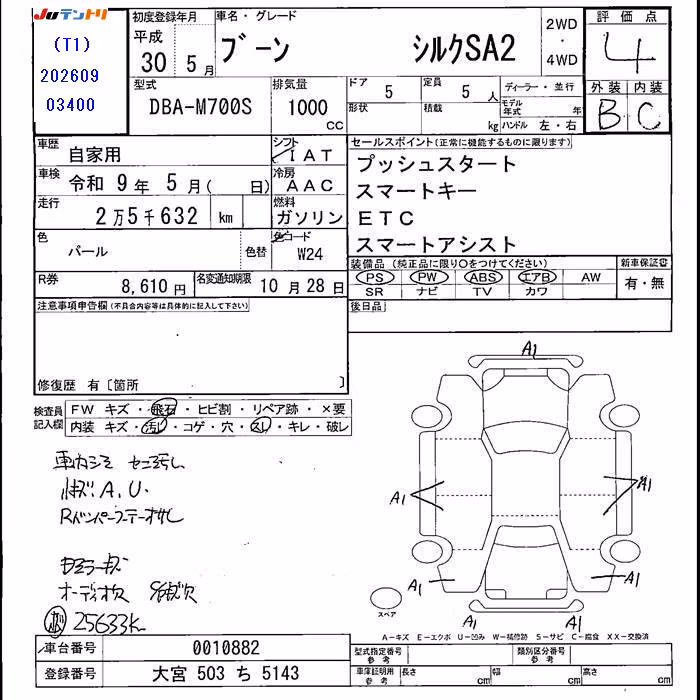 Juテントリ
(T1)
202609
03400
初度登録年月
平成
30 5月
車名・グレード
ブーン シルクSA2
2WD
・
4WD
評価点
4
外装 内装
B C
型式
DBA-M700S
排気量
1000
CC
ドア 5
定員 5 人
形状
積載 kg
ディーラー・並行
モデル年式 年
ハンドル 左・右
車歴 自家用
シフト IAT
車検 令和 9年 5月( 日)
冷房 AAC
走行 2万5千632 km
燃料 ガソリン
色 パール 色替
色コード W24
R券 8,610円
名変通知期限 10月28日
セールスポイント(正常に機能するものに限ります)
プッシュスタート
スマートキー
ETC
スマートアシスト
装備品(純正品に限り〇をつけてください)
PS PW ABS エアB AW
SR ナビ TV カワ
新車保証書
有・無
後日品
注意事項申告欄(不具合内容等は具体的に記入して下さい)
修復歴 有〔箇所 〕
検査員記入欄
FW キズ・飛石・ヒビ割・リペア跡・×要
内装 キズ・汚レ・コゲ・穴・スレ・キレ・破レ
A、U.
オーディオ欠
25633K
A1
A1
A1
A1
A1
A1
スペア
A-キズ E-エクボ U-凹み W-補修跡 S-サビ C-腐食 XX-交換済
車台番号 0010882
登録番号 大宮 503 ち 5143
型式指定番号
参考
類別区分番号
参考
車庫証明用
参考
長さ cm 幅 cm 高さ cm